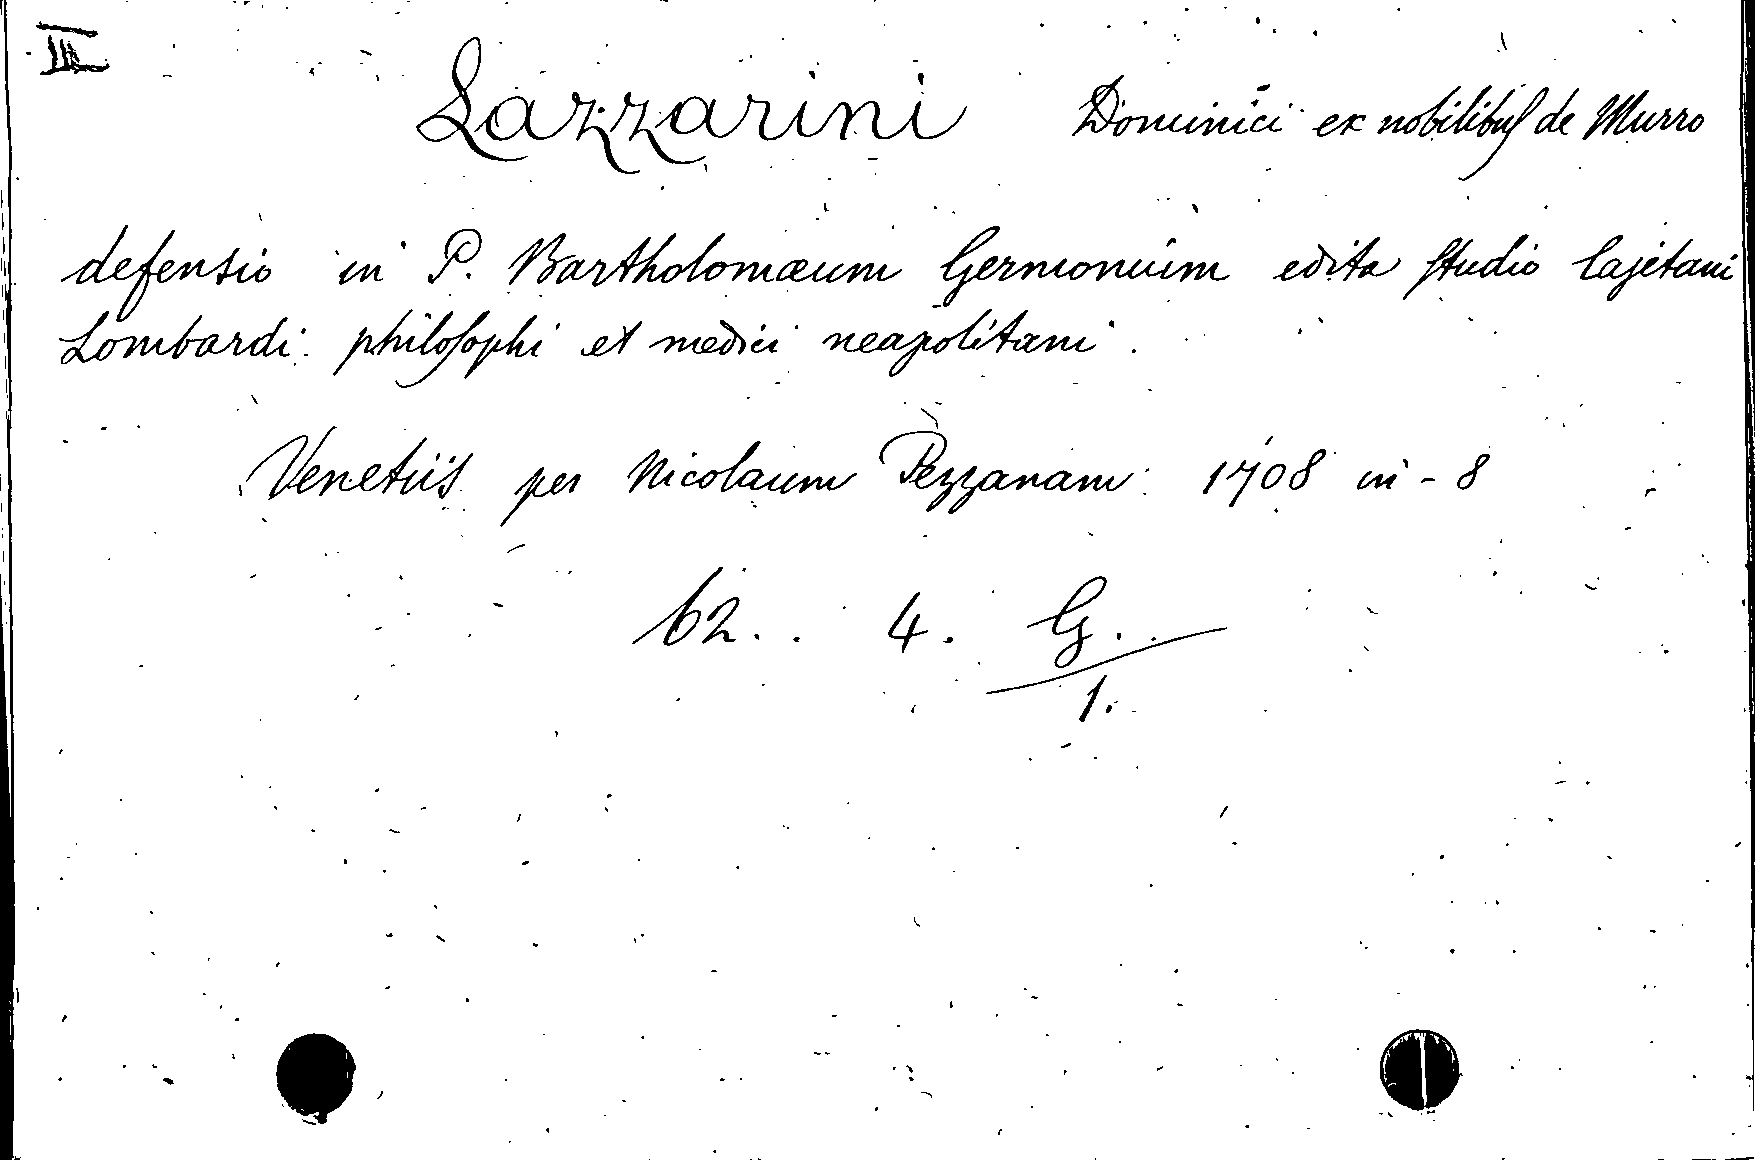 III
Lazzarini Dominici ex nobilibus de Murro
defensio in P. Bartholomæum Germonium edita studio Cajetani
Lombardi philosophi et medici neapolitani.
Venetiis per Nicolaum Pezzanam 1708 in-8
62. 4. G.
1.